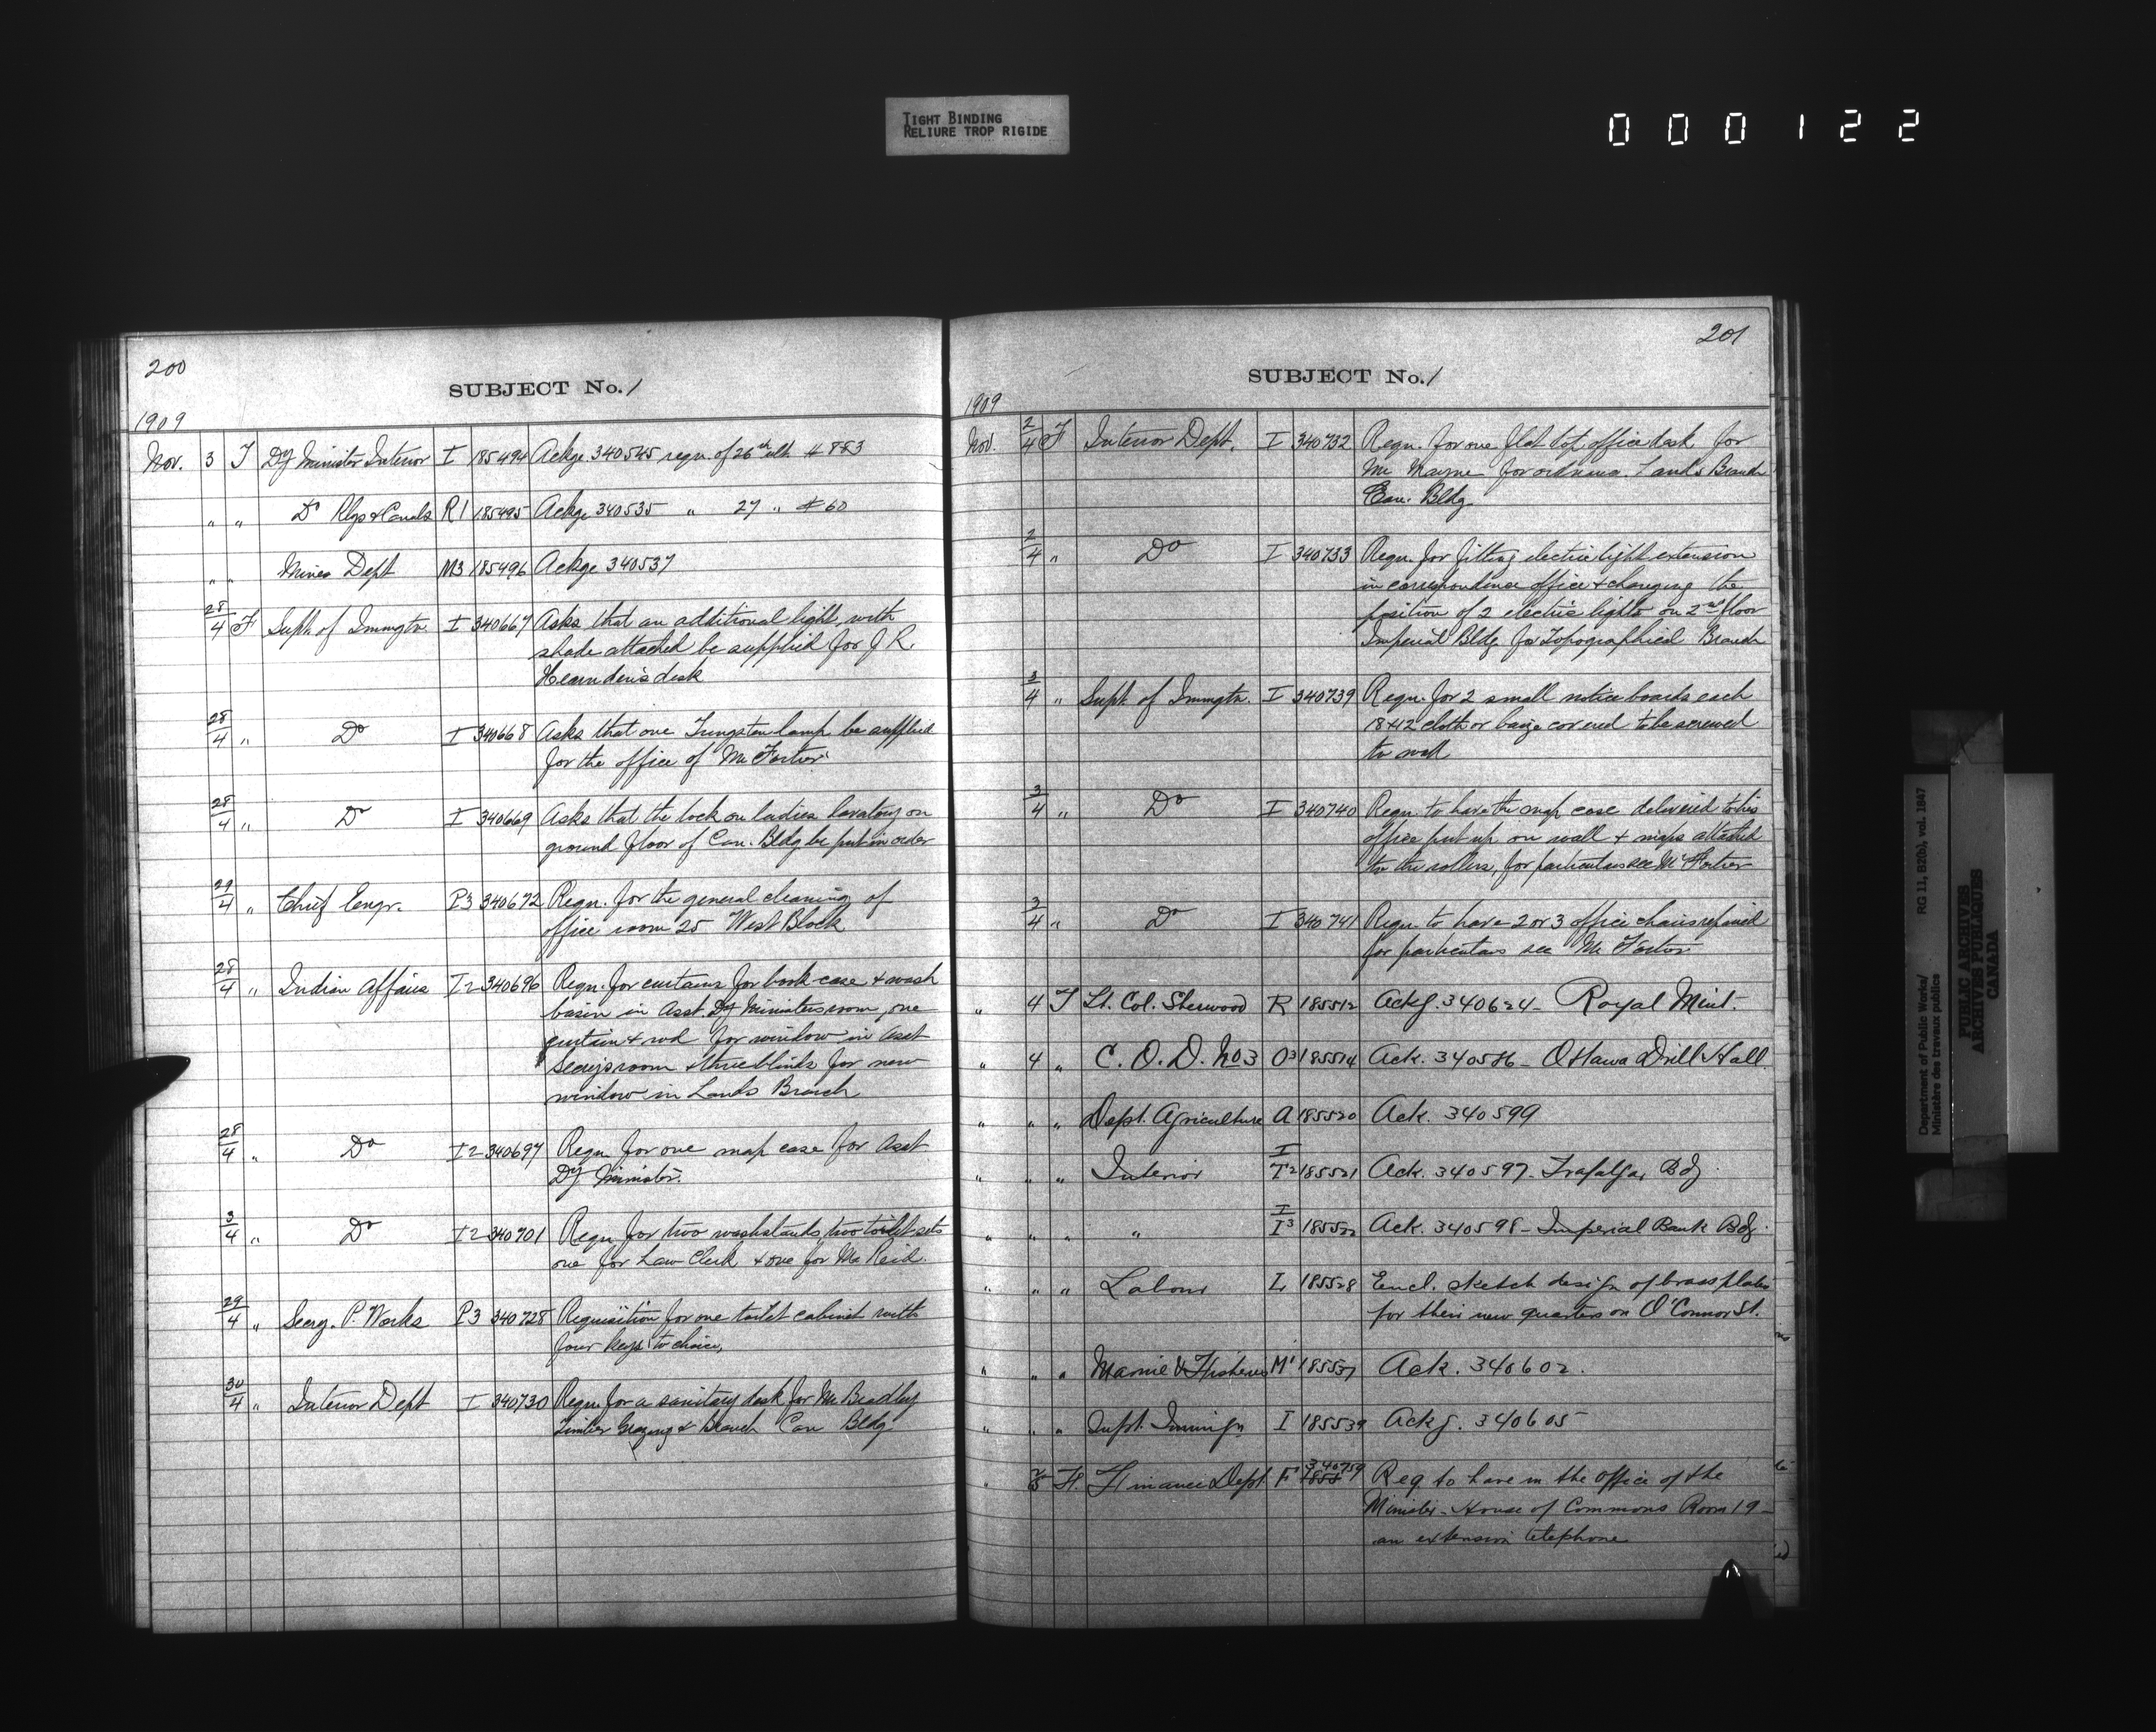 TIGHT BINDING
RELIURE TROP RIGIDE
000122
200
SUBJECT No. 1
1909
Nov. 3 T Dy Minister Interior I 185494 Ackge 340545 reqn. of 26th ult # 883
" " Do Rlys & Canals R1 185495 Ackge 340535 " 27 " # 60
" " Mines Dept M3 185496 Ackge 340537
28/4 F Supt. of Immgtn. I 340667 Asks that an additional light, with
shade attached be supplied for J. R.
Hearnden's desk
28/4 " Do I 340668 Asks that one Tungsten lamp be supplied
for the office of Mr Fortier
28/4 " Do I 340669 Asks that the lock on ladies lavatory on
ground floor of Can. Bldg be put in order
29/4 " Chief Engr. P3 340672 Reqn. for the general cleaning of
office room 25 West Block
28/4 " Indian Affairs I2 340696 Reqn. for curtains for book-case & wash
basin in Asst. Dy Ministers room, one
curtain & rod for window in Asst
Secys room & three blinds for new
window in Lands Branch
28/4 " Do I2 340697 Reqn for one map case for Asst
Dy Minister.
3/4 " Do I2 340701 Reqn for two washstands, two toilet sets
one for Law Clerk & one for Mr Reid.
29/4 " Secry. P. Works P3 340728 Requisition for one toilet cabinet with
four keys to choice,
30/4 " Interior Dept I 340730 Reqn. for a sanitary desk for Mr Bradley
Timber Grazing & Branch Can Bldg
201
SUBJECT No. 1
1909
Nov. 2/4 F Interior Dept. I 340732 Reqn. for one flat top office desk for
Mr Mayne for ordnance Lands Branch
Can. Bldg
2/4 " Do I 340733 Reqn. for fitting electric light extension
in correspondence office & changing the
position of 2 electric lights on 2nd floor
Imperial Bldg for Topographical Branch
3/4 " Supt. of Immgtn. I 340739 Reqn. for 2 small notice boards each
18x12 cloth or baize covered to be screwed
to wall
3/4 " Do I 340740 Reqn. to have the map case delivered to his
office put up on wall & maps attached
to the rollers, for particulars see Mr Fortier
3/4 " Do I 340741 Reqn. to have 2 or 3 office chairs repaired
for particulars see Mr Fortier
" 4 T Lt. Col. Sherwood R 185512 Ackg. 340624 - Royal Mint.
" 4 " C. O. D. No 3 O3 185514 Ack. 340586 - Ottawa Drill Hall.
" " " Dept. Agriculture A 185520 Ack. 340599
" " " Interior I T2 185521 Ack. 340597 - Trafalgar Bdg.
" " " " I I3 185522 Ack. 340598 - Imperial Bank Bdg.
" " " Labour L 185528 Encl. sketch design of brass plates
for their new quarters on O'Connor St.
" " " Marine & Fisheries M1 185537 Ack. 340602.
" " " Supt. Immign I 185539 Ackg. 340605
" F. Finance Dept F 340759 Req to have in the office of the
Minister - House of Commons Room 19 -
an extension telephone
Department of Public Works/
Ministère des travaux publics
RG 11, B2(b), vol. 1847
PUBLIC ARCHIVES
ARCHIVES PUBLIQUES
CANADA